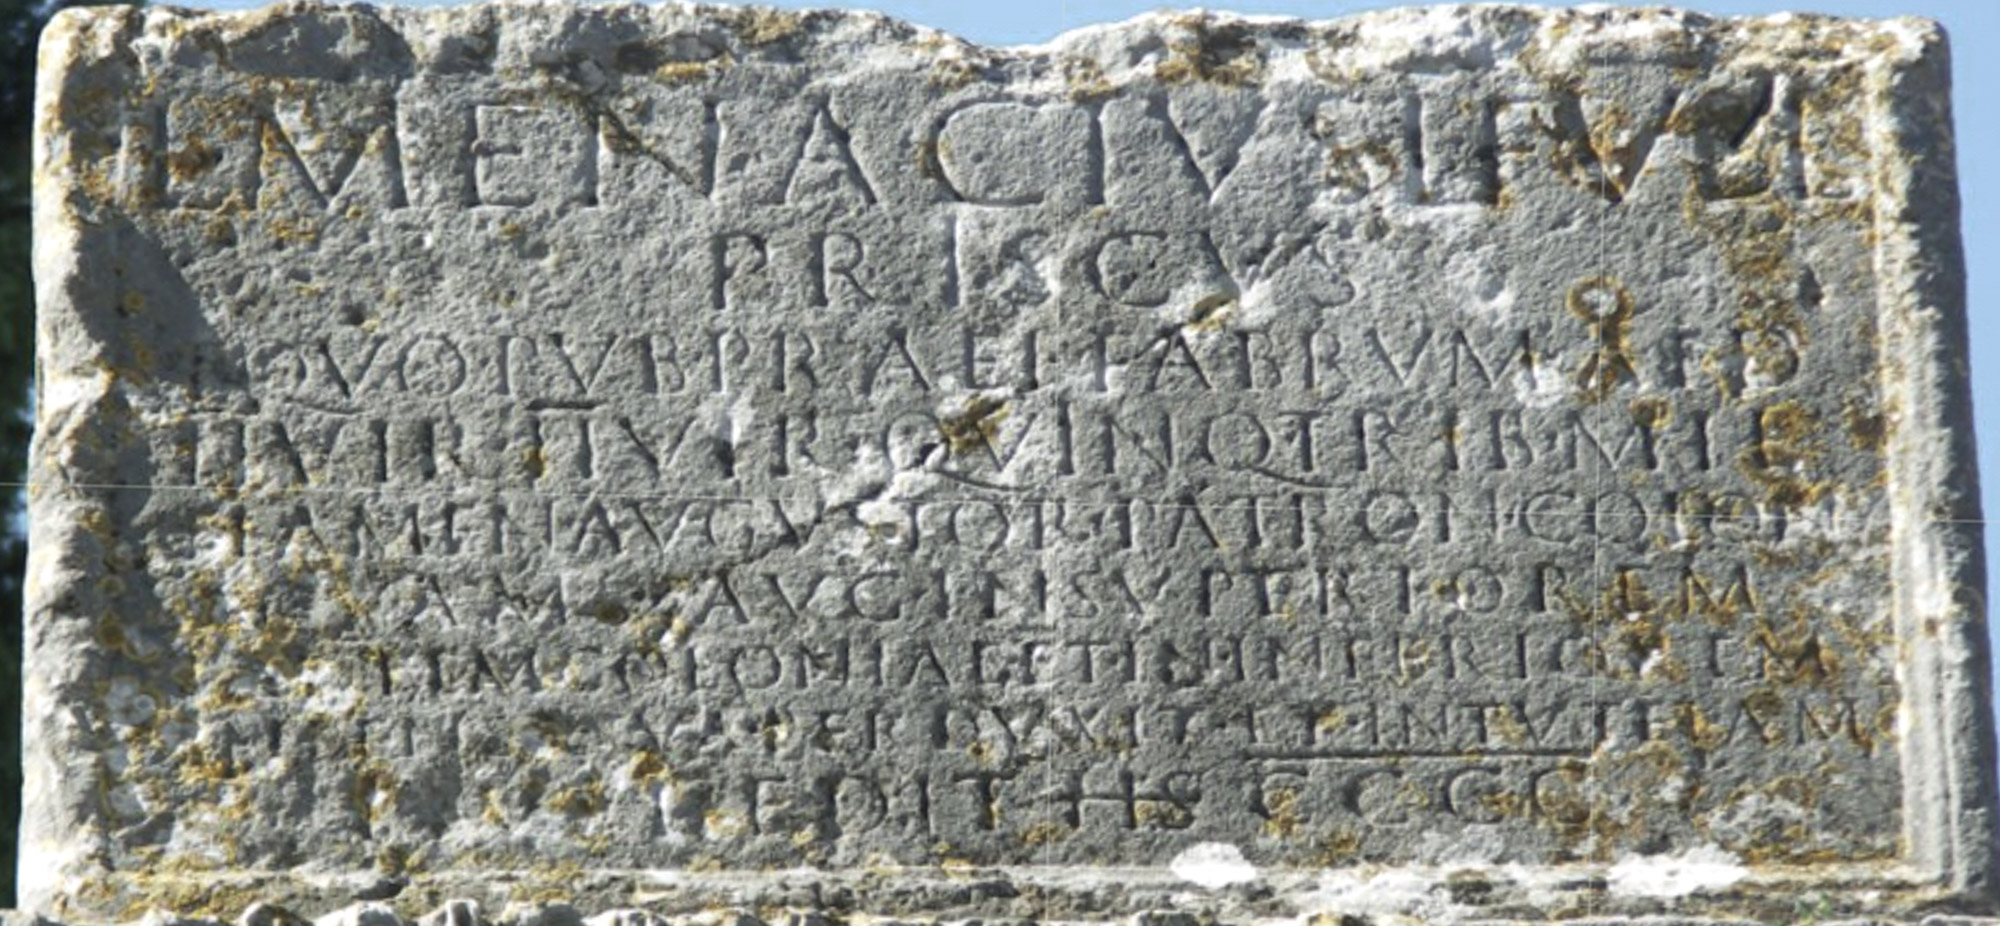 L MENACIVS L F VEL
PRISCVS
EQVO PVB PRAEF FABRVM AED
IIVIR IIVIR QVINQ TRIB MIL
FLAMEN AVGVSTOR PATRON COLON
AQVAM AVG IN SVPERIOREM
PARTEM COLONIAE ET IN INFERIOREM
INPENSA SVA PERDVXIT ET IN TVTELAM
EIVS DEDIT HS CCCC